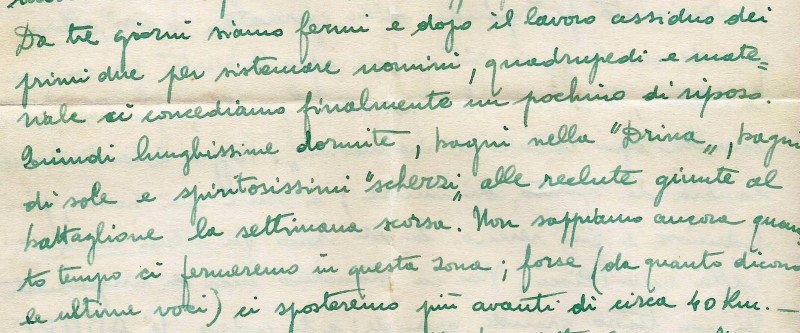 Da tre giorni siamo fermi e dopo il lavoro assiduo dei
primi due per sistemare uomini, quadrupedi e mate=
riale ci concediamo finalmente un pochino di riposo.
Quindi lunghissime dormite, bagni nella "Drina", bagni
di sole e spiritosissimi "scherzi" alle reclute giunte al
battaglione la settimana scorsa. Non sappiamo ancora quan
to tempo ci fermeremo in questa zona; forse (da quanto dicono
le ultime voci) ci sposteremo più avanti di circa 40 Km. —